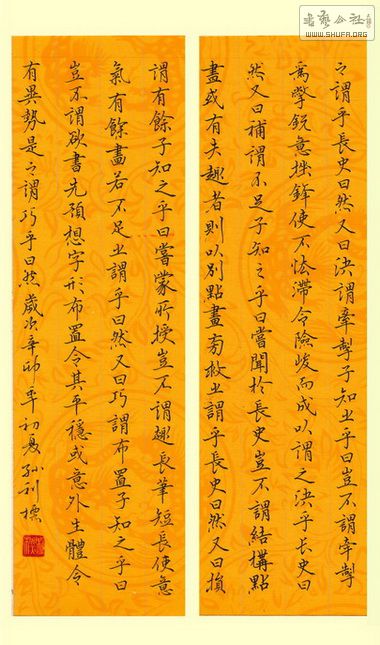 之謂乎長史曰然又曰決謂牽掣子知之乎曰豈不謂牽掣
為擎銳意挫鋒使不怯滯令險峻而成以謂之決乎長史曰
然又曰補謂不足子知之乎曰嘗聞於長史豈不謂結構點
畫或有失趣者則以別點畫旁救之謂乎長史曰然又曰損
謂有餘子知之乎曰嘗蒙所授豈不謂趣長筆短長使意
氣有餘畫若不足之謂乎曰然又曰巧謂布置子知之乎曰
豈不謂欲書先預想字形布置令其平穩或意外生體令
有異勢是之謂巧乎曰然歲次辛卯年初夏孫利標
書藝公社
WWW.SHUFA.ORG